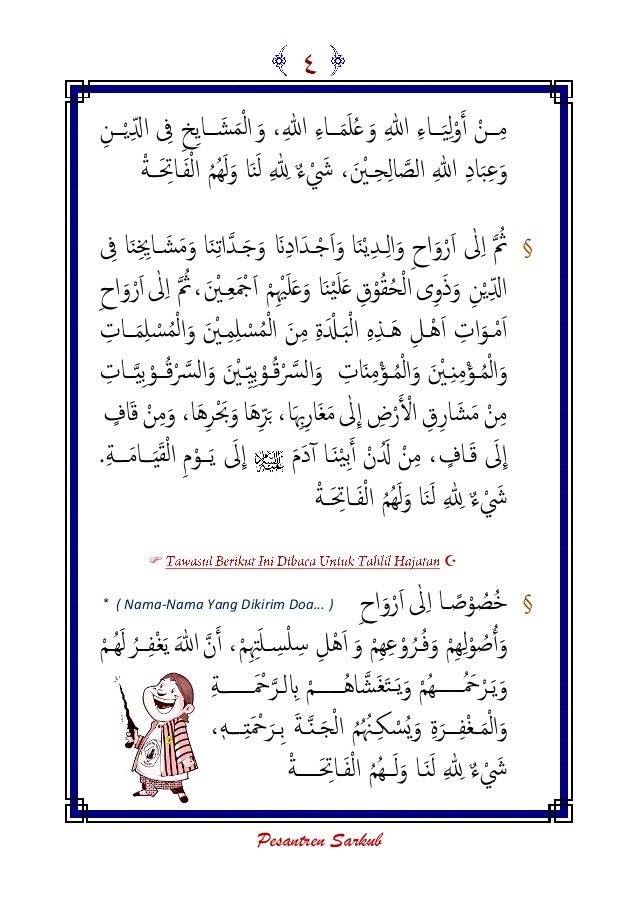 ٤
مِـنْ أَوْلِيَـاءِ اللهِ وَ عُلَمَـاءِ اللهِ، وَ الْمَشَـايِخِ فِى الدِّيْـنِ
وَعِبَادِ اللهِ الصَّالِحِـيْنَ، شَيْءٌ لِلّٰهِ لَنَا وَلَهُمُ الْفَـاتِحَـةْ
§ ثُمَّ اِلَى اَرْوَاحِ وَالِـدِيْنَا وَاَجْـدَادِنَا وَجَـدَّاتِنَا وَمَشَـايِخِنَا فِى
الدِّيْنِ وَذَوِى الْحُقُوْقِ عَلَيْنَا وَعَلَيْهِمْ اَجْمَعِـيْنَ، ثُمَّ اِلَى اَرْوَاحِ
اَمْـوَاتِ اَهْـلِ هَـذِهِ الْبَـلْدَةِ مِنَ الْمُسْلِمِـيْنَ وَالْمُسْلِمَـاتِ
وَالْمُـؤْمِنِـيْنَ وَالْمُـؤْمِنَاتِ وَالسَّرْقُـوْبِيِّـيْنَ وَالسَّرْقُـوْبِيَّـاتِ
مِنْ مَشَارِقِ الْأَرْضِ إِلَى مَغَارِبِهَا، بَرِّهَا وَبَحْرِهَا، وَمِنْ قَافٍ
إِلَى قَـافٍ، مِنْ لَدُنْ أَبِيْنَـا آدَمَ إِلَى يَـوْمِ الْقِيَـامَـةِ.
شَيْءٌ لِلّٰهِ لَنَا وَلَهُمُ الْفَـاتِحَـةْ
Tawasul Berikut Ini Dibaca Untuk Tahlil Hajatan
§ خُصُوْصًـا اِلَى اَرْوَاحِ ( Nama-Nama Yang Dikirim Doa... ) *
وَأُصُوْلِهِمْ وَفُرُوْعِهِمْ وَ اَهْلِ سِلْسِـلَتِهِمْ، أَنَّ اللهَ يَغْفِـرُ لَهُمْ
وَيَرْحَمُـهُمْ وَيَـتَغَشَّاهُـمْ بِالرَّحْمَـةِ
وَالْمَـغْفِـرَةِ وَيُسْـكِـنُهُمُ الْجَـنَّـةَ بِـرَحْمَتِـهِ،
شَيْءٌ لِلّٰهِ لَنَـا وَلَـهُمُ الْفَـاتِحَـةْ
Pesantren Sarkub